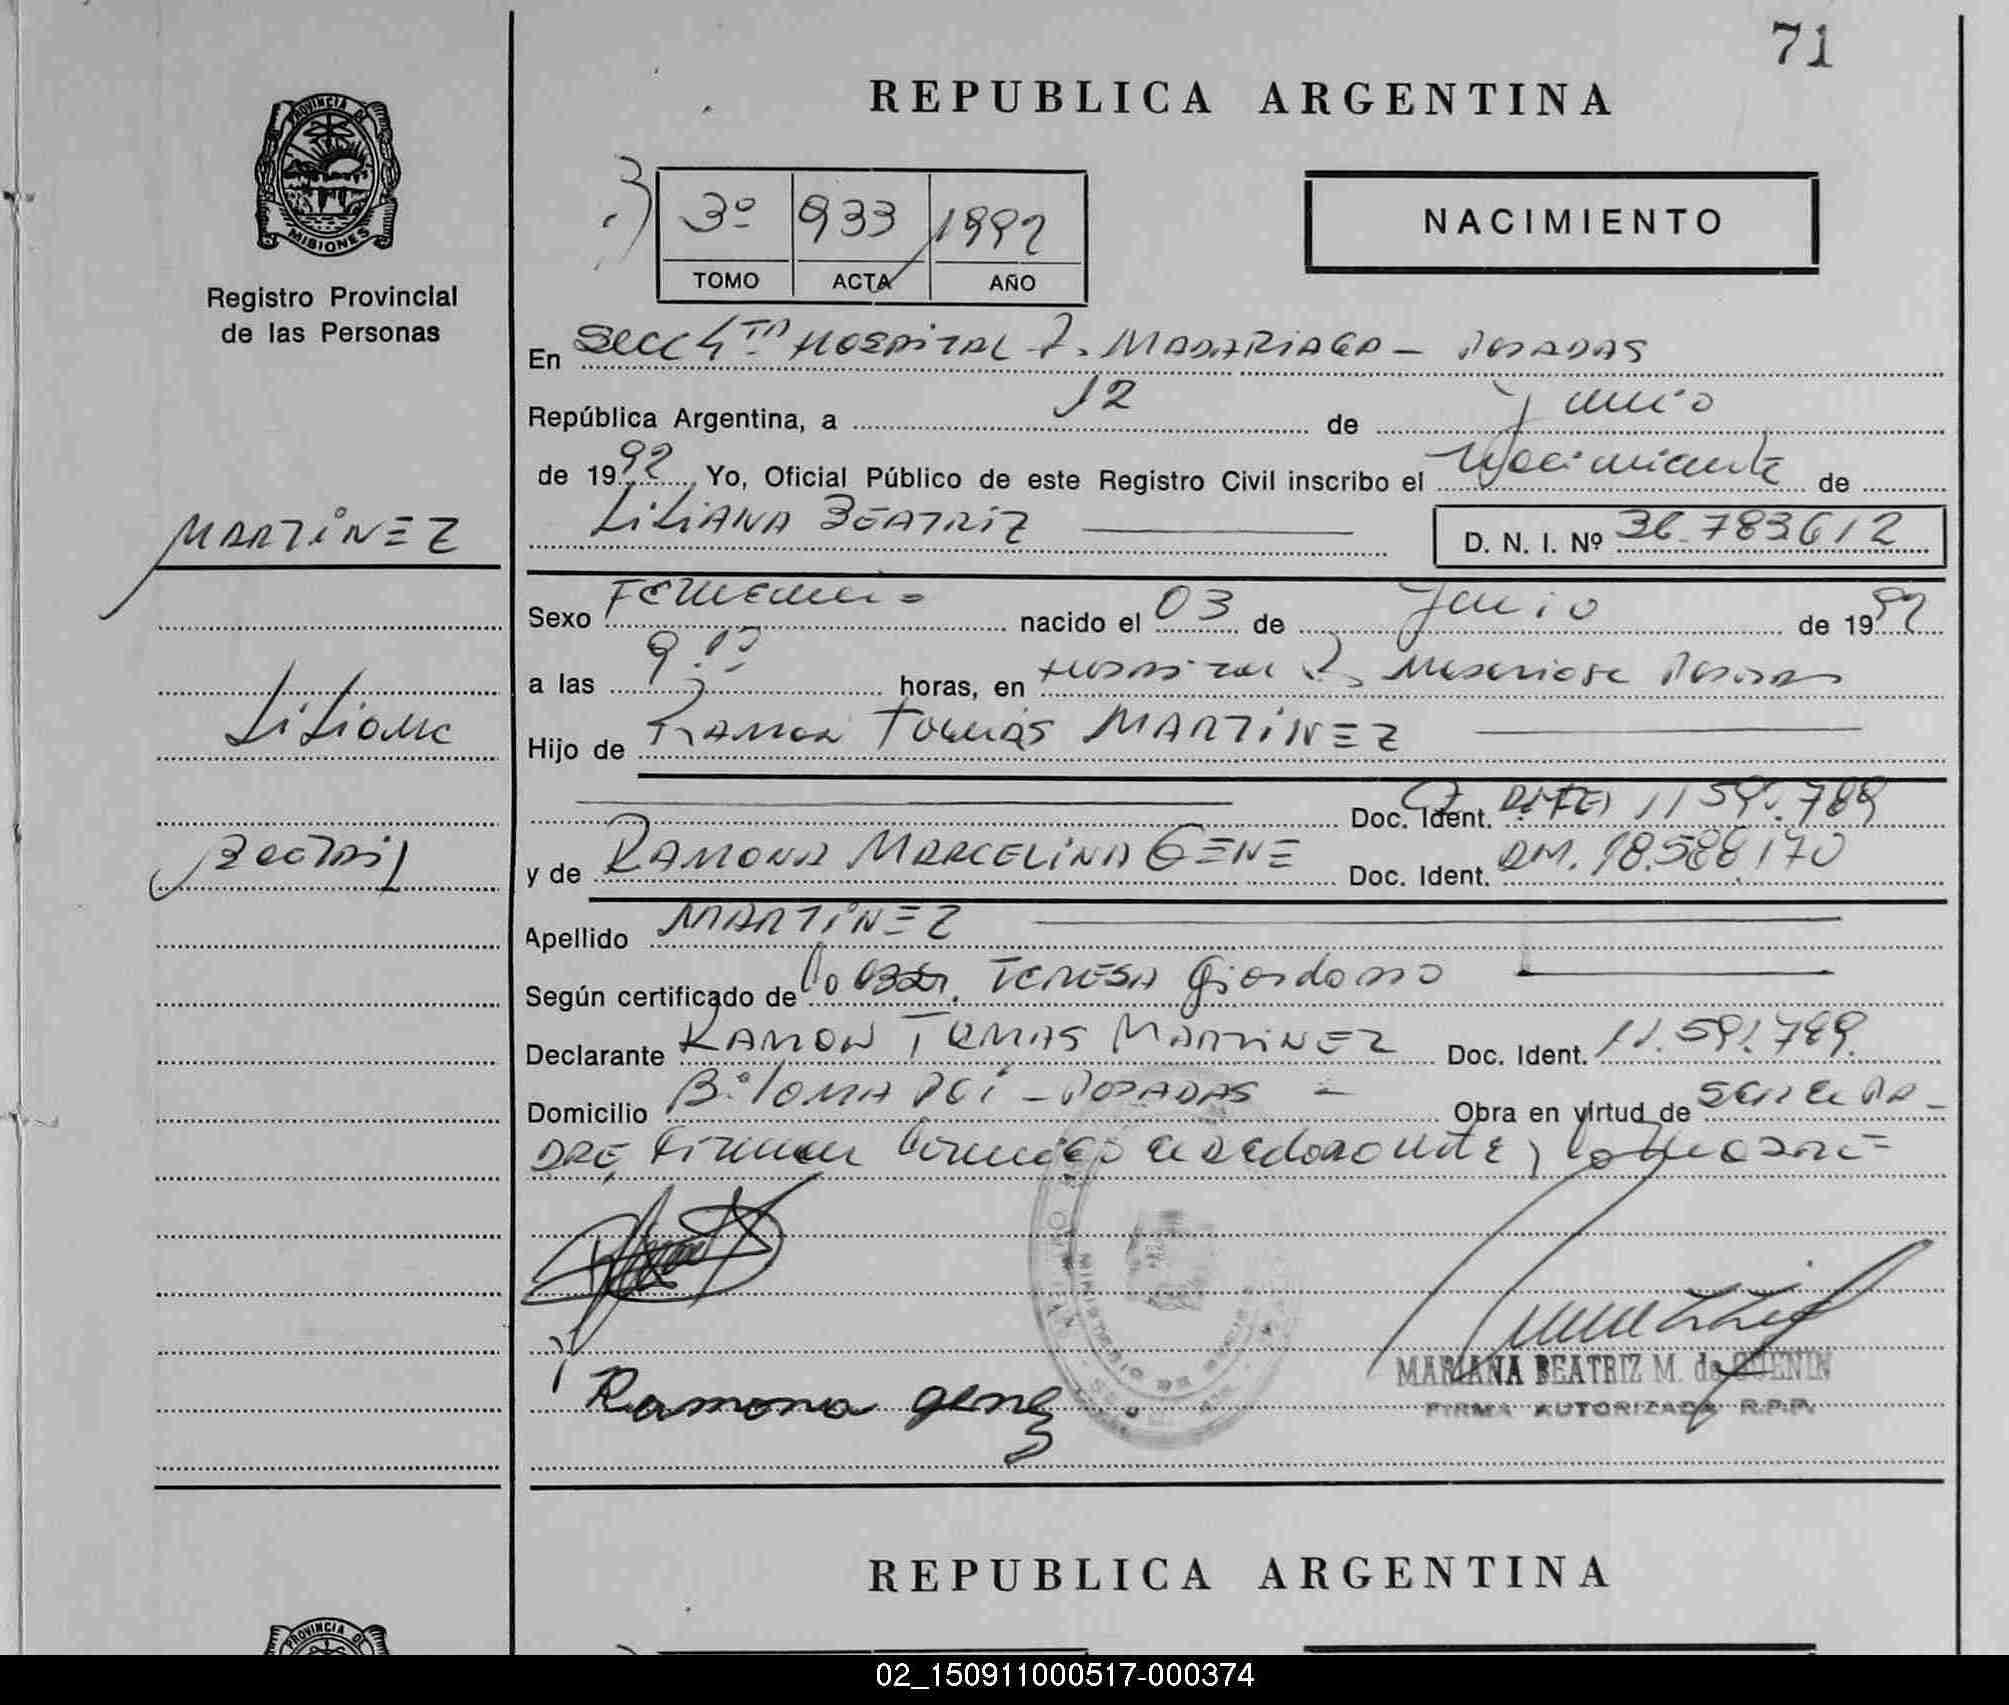 71
REPUBLICA ARGENTINA
PROVINCIA DE
MISIONES
Registro Provincial
de las Personas
3º 933 1992
TOMO ACTA AÑO
NACIMIENTO
En Secc 4ta Hospital R. MADARIAGA - POSADAS
República Argentina, a 12 de Junio
de 1992 Yo, Oficial Público de este Registro Civil inscribo el Nacimiento de
LILIANA BEATRIZ D. N. I. Nº 36.783612
MARTINEZ
Liliana
Beatriz
Sexo Femenino nacido el 03 de Junio de 1992
a las 9.10 horas, en Hospital R. Madariaga Posadas
Hijo de Ramon Tomás MARTINEZ
Doc. Ident. 11 591.789
y de RAMONA MARCELINA GENE Doc. Ident. DNI. 18.588.170
Apellido MARTINEZ
Según certificado de la Obst. TERESA Giordano
Declarante RAMON TOMAS MARTINEZ Doc. Ident. 11.591.789.
Domicilio Bº LOMA POI - POSADAS - Obra en virtud de ser el PA-
DRE, Firman conmigo el declarante y la madre
MINISTERIO DE
Ramona gene
MARIANA BEATRIZ M. de GUENIN
FIRMA AUTORIZADA R.P.P.
REPUBLICA ARGENTINA
PROVINCIA DE
02_150911000517-000374